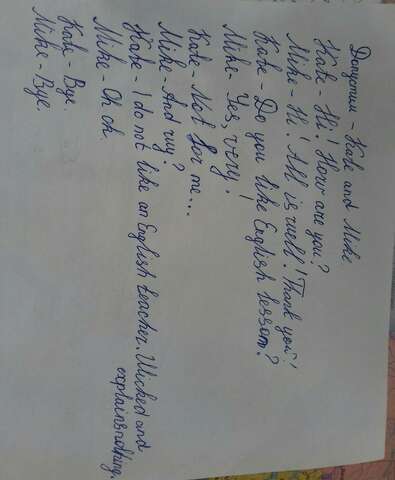 Допустим - Kate and Mike.
Kate - Hi! How are you?
Mike - Hi! All is well! Thank you!
Kate - Do you like English lesson?
Mike - Yes, very!
Kate - Not for me...
Mike - And wy?
Kate - I do not like an English teacher. Wicked and
explains nothing.
Mike - Oh oh.
Kate - Bye.
Mike - Bye.